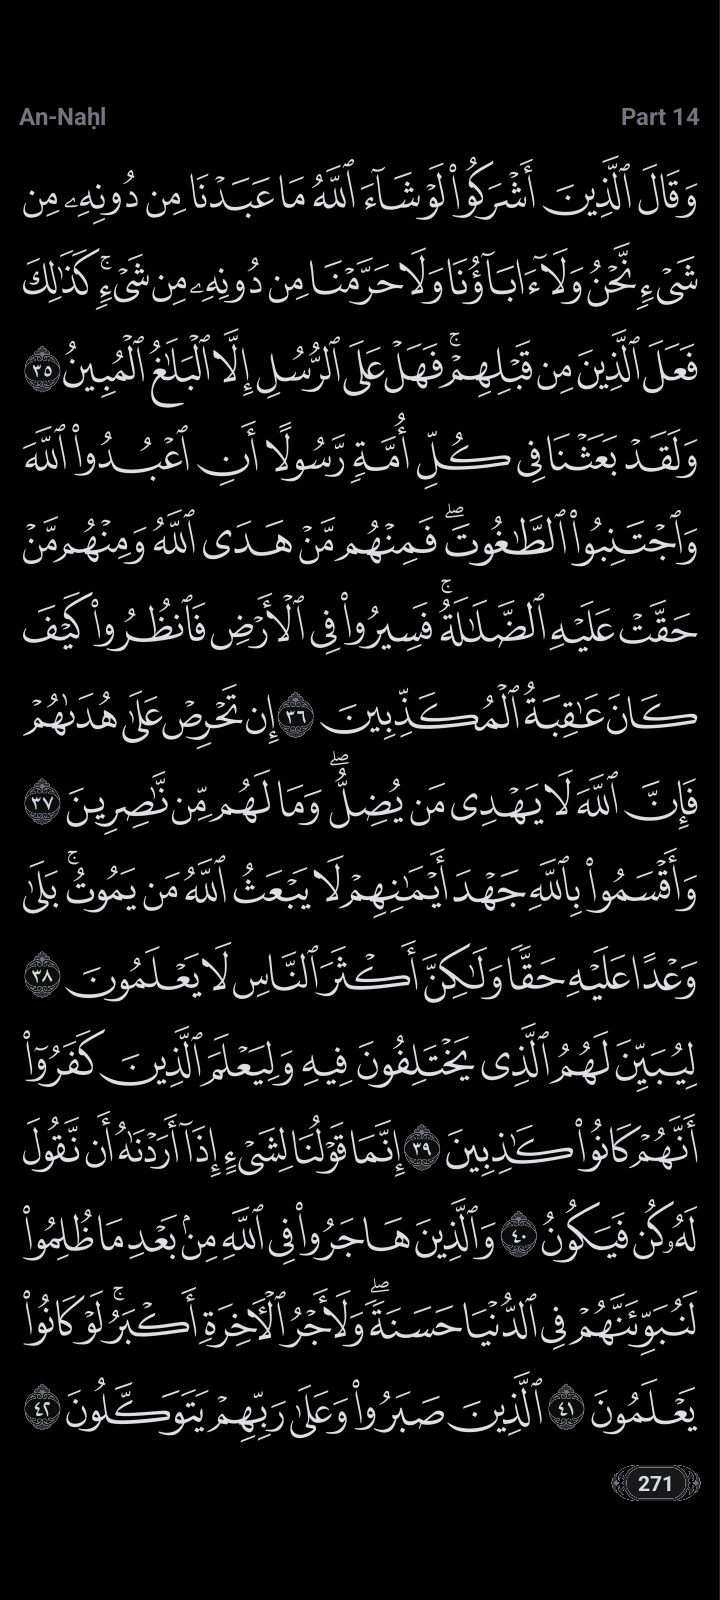 An-Naḥl
Part 14
وَقَالَ ٱلَّذِينَ أَشۡرَكُواْ لَوۡ شَآءَ ٱللَّهُ مَا عَبَدۡنَا مِن دُونِهِۦ مِن
شَيۡءٖ نَّحۡنُ وَلَآ ءَابَآؤُنَا وَلَا حَرَّمۡنَا مِن دُونِهِۦ مِن شَيۡءٖۚ كَذَٰلِكَ
فَعَلَ ٱلَّذِينَ مِن قَبۡلِهِمۡۚ فَهَلۡ عَلَى ٱلرُّسُلِ إِلَّا ٱلۡبَلَٰغُ ٱلۡمُبِينُ ٣٥
وَلَقَدۡ بَعَثۡنَا فِي كُلِّ أُمَّةٖ رَّسُولًا أَنِ ٱعۡبُدُواْ ٱللَّهَ
وَٱجۡتَنِبُواْ ٱلطَّٰغُوتَۖ فَمِنۡهُم مَّنۡ هَدَى ٱللَّهُ وَمِنۡهُم مَّنۡ
حَقَّتۡ عَلَيۡهِ ٱلضَّلَٰلَةُۚ فَسِيرُواْ فِي ٱلۡأَرۡضِ فَٱنظُرُواْ كَيۡفَ
كَانَ عَٰقِبَةُ ٱلۡمُكَذِّبِينَ ٣٦ إِن تَحۡرِصۡ عَلَىٰ هُدَىٰهُمۡ
فَإِنَّ ٱللَّهَ لَا يَهۡدِي مَن يُضِلُّۖ وَمَا لَهُم مِّن نَّٰصِرِينَ ٣٧
وَأَقۡسَمُواْ بِٱللَّهِ جَهۡدَ أَيۡمَٰنِهِمۡ لَا يَبۡعَثُ ٱللَّهُ مَن يَمُوتُۚ بَلَىٰ
وَعۡدًا عَلَيۡهِ حَقّٗا وَلَٰكِنَّ أَكۡثَرَ ٱلنَّاسِ لَا يَعۡلَمُونَ ٣٨
لِيُبَيِّنَ لَهُمُ ٱلَّذِي يَخۡتَلِفُونَ فِيهِ وَلِيَعۡلَمَ ٱلَّذِينَ كَفَرُوٓاْ
أَنَّهُمۡ كَانُواْ كَٰذِبِينَ ٣٩ إِنَّمَا قَوۡلُنَا لِشَيۡءٍ إِذَآ أَرَدۡنَٰهُ أَن نَّقُولَ
لَهُۥ كُن فَيَكُونُ ٤٠ وَٱلَّذِينَ هَاجَرُواْ فِي ٱللَّهِ مِنۢ بَعۡدِ مَا ظُلِمُواْ
لَنُبَوِّئَنَّهُمۡ فِي ٱلدُّنۡيَا حَسَنَةٗۖ وَلَأَجۡرُ ٱلۡأٓخِرَةِ أَكۡبَرُۚ لَوۡ كَانُواْ
يَعۡلَمُونَ ٤١ ٱلَّذِينَ صَبَرُواْ وَعَلَىٰ رَبِّهِمۡ يَتَوَكَّلُونَ ٤٢
271